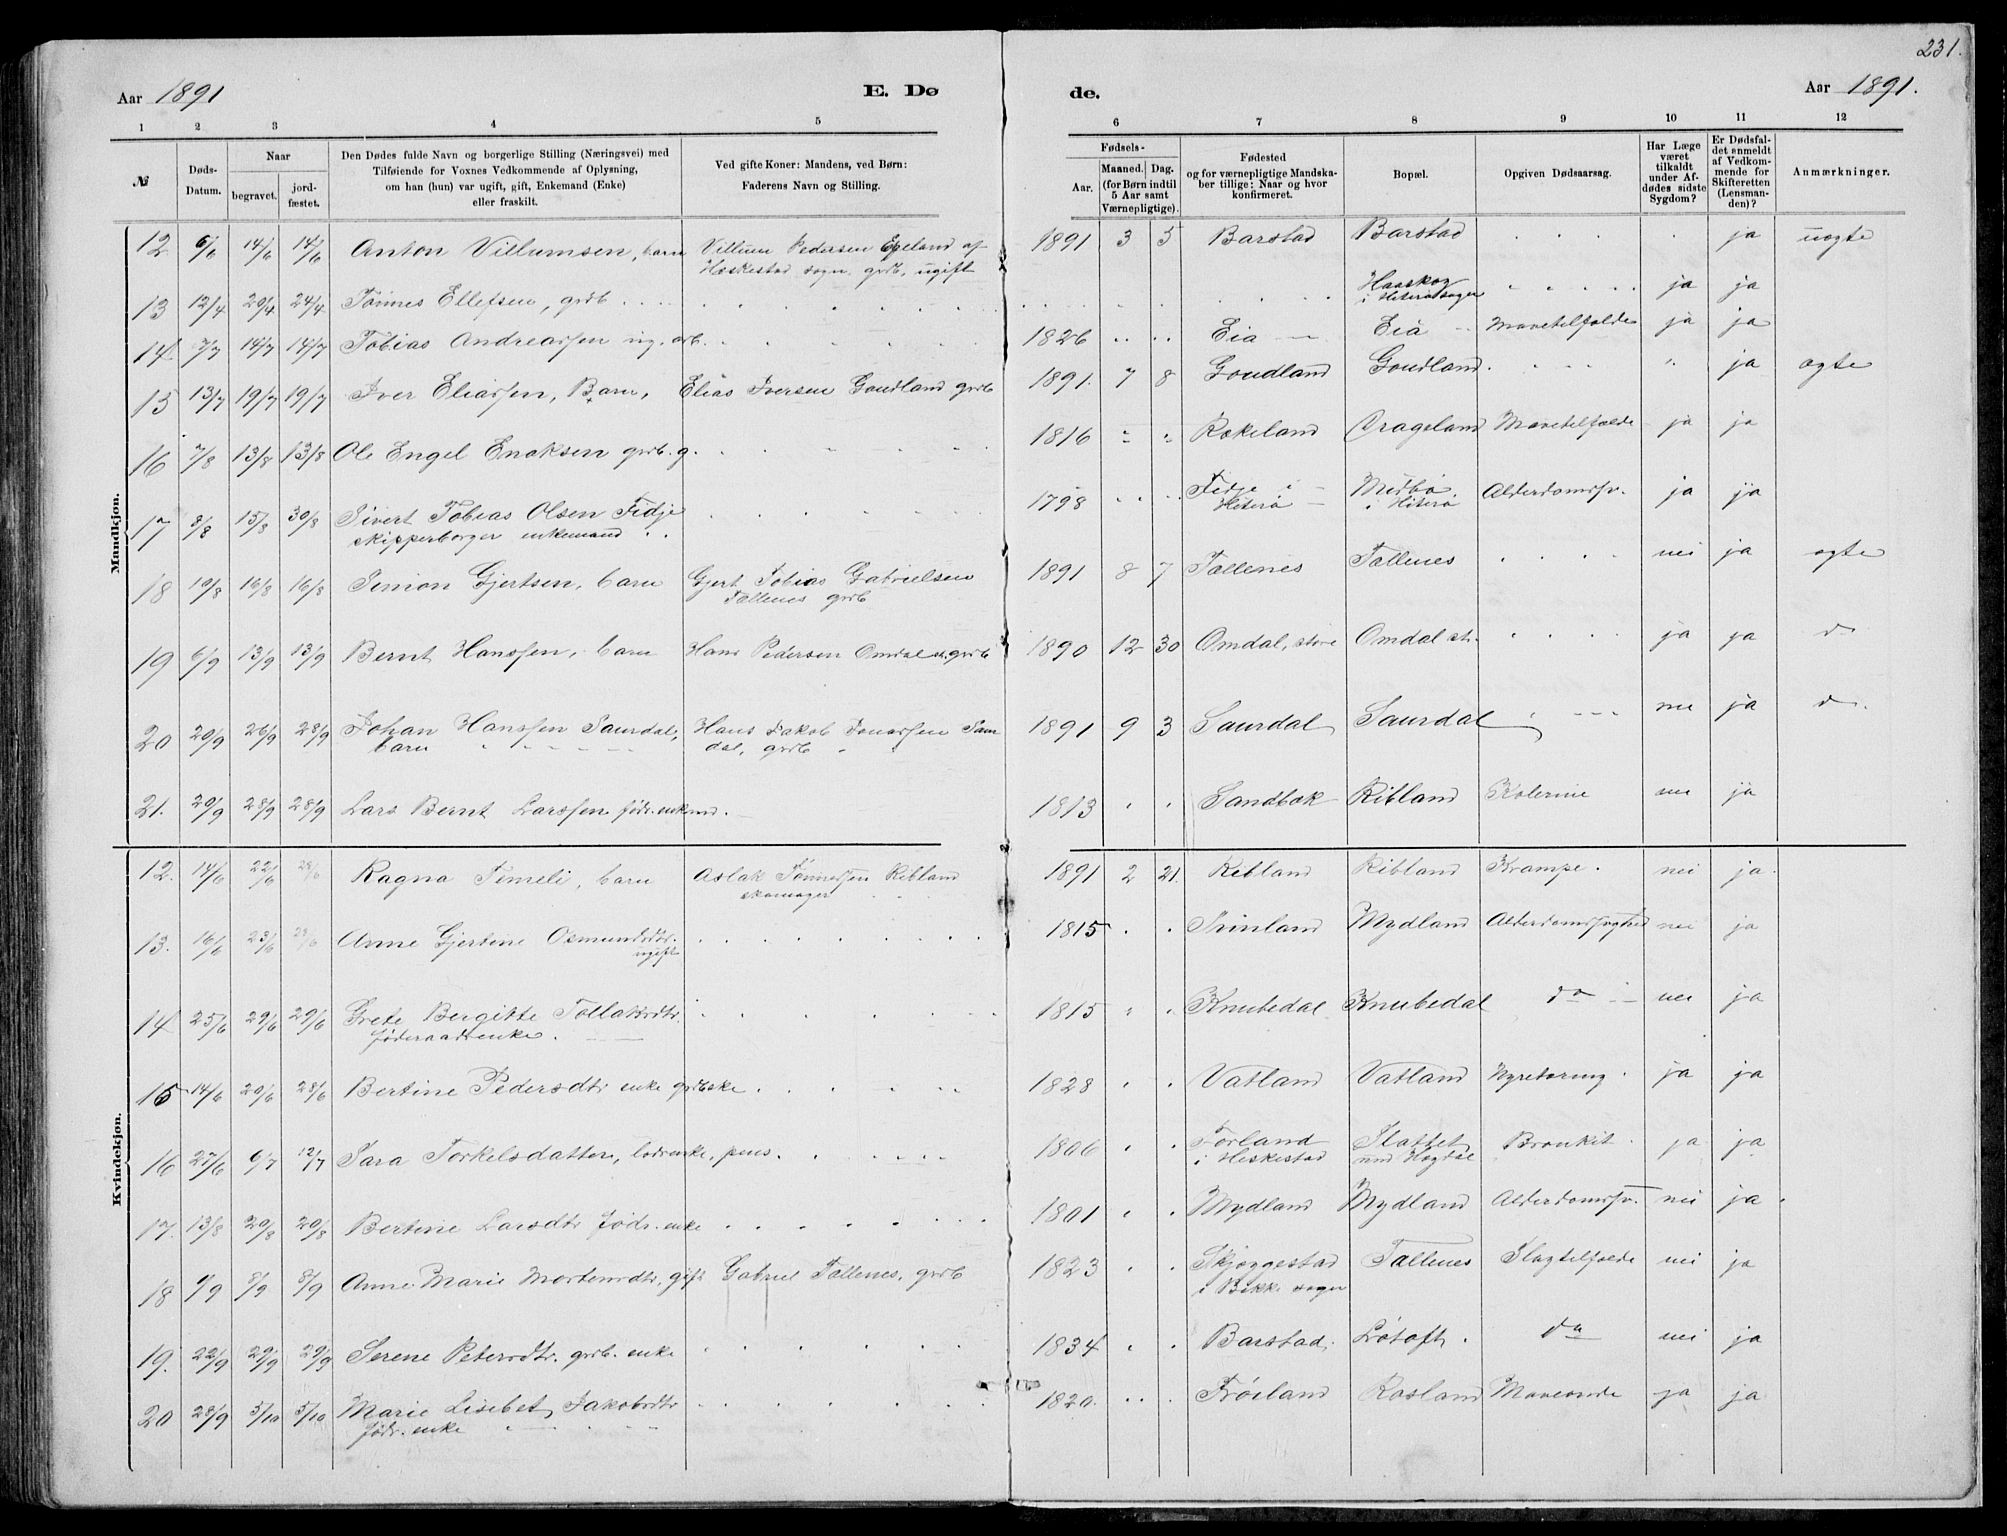 231.
Aar 1891 E. Dø de. Aar 1891.
1 2 3 4 5 6 7 8 9 10 11 12
№ Døds-Datum. Naar begravet. jord-fæstet. Den Dødes fulde Navn og borgerlige Stilling (Næringsvei) med Tilføiende for Voxnes Vedkommende af Oplysning, om han (hun) var ugift, gift, Enkemand (Enke) eller fraskilt. Ved gifte Koner: Mandens, ved Børn: Faderens Navn og Stilling. Fødsels- Aar. Maaned. Dag. (for Børn indtil 5 Aar samt Værnepligtige). Fødested og for værnepligtige Mandska-ber tillige: Naar og hvor konfirmeret. Bopæl. Opgiven Dødsaarsag. Har Læge været tilkaldt under Af-dødes sidste Sygdom? Er Dødsfal-det anmeldt af Vedkom-mende for Skifteretten (Lensman-den)? Anmærkninger.
Mandkjøn.
12 6/6 14/6 14/6 Anton Villumsen, barn Villum Pedersen Egeland af 1891 3 5 Barstad Barstad ja uægte
Heskestad sogn. grdb, ugift
13 12/4 20/4 24/4 Tønnes Ellefsen, grdb Haaskog ja ja
i Hiterø sogn
14 7/7 14/7 14/7 Tobias Andreassen ug. arb. 1826 Eia Eia Mavetilfælde ja ja
15 13/7 19/7 19/7 Iver Eliassen, Barn, Elias Iversen Goudland grdb 1891. 7 8 Goudland Goudland ja ægte
16 7/8 13/8 13/8 Ole Engel Enoksen grdb. g. 1816 Rækeland Drageland Mavetilfælde ja ja
17 8/8 15/8 30/8 Sivert Tobias Olsen Fidje 1798 Fidje i Hiterø Midbø i Hiterø Alderdomssv. ja ja
skipperborger enkemand
18 19/8 16/8 16/8 Simon Gjertsen, barn Gjert Tobias Gabrielsen 1891 8 7 Tallenes Tallenes nei ja ægte
Tallenes grdb
19 6/9 13/9 13/9 Bernt Hanssen, barn Hans Pedersen Omdal st. grdb 1890 12 30 Omdal, store Omdal st. ja ja do
20 20/9 26/9 28/9 Johan Hanssen Saurdal, Hans Jakob Jonassen Saur 1891 9 3 Saurdal Saurdal nei ja do.
barn dal, grdb
21. 20/9 28/9 28/9 Lars Bernt Larssen føds. enkmd. 1813 Sandbæk Ribland Kolerine nei ja
Kvindekjøn.
12. 14/6 22/6 28/6 Ragna Timeli, barn Aslak Tønnessen Ribland 1891 2 21. Ribland Ribland Krampe. nei ja.
skomager
13. 16/6 23/6 28/6 Anne Gjertine Osmundsdtr. 1815 Svinland Mydland Alderdomssvaghed nei ja
ugift
14 25/6 29/6 29/6 Grete Bergitte Tollaksdtr. 1815 Knubedal Knubedal do nei ja
føderaadsenke.
15 14/6 20/6 28/6 Bertine Pedersdtr enke grdbske 1828 Vatland Vatland Nyretæring. ja ja
16 27/6 6/7 12/7 Sara Torkelsdatter, lodsenke, pens. 1806 Førland Slottet Bronkit. ja ja
i Heskestad und Hogdal
17. 13/8 20/8 20/8 Bertine Larsdtr fødr. enke 1801 Mydland Mydland Alderdomssv. nei ja
18 1/9 8/9 8/9 Anne Marie Mortensdtr, gift Gabriel Tallenes, grdb 1823 Skjøggestad Tallenes Slagtilfælde nei ja
i Bakke sogn
19. 22/9 29/9 29/9 Serene Petersdtr. grdb. enke 1834 Barstad. Løtoft. do nei ja
20 28/9 5/10 5/10 Marie Lisebet Jakobsdtr 1820. Frøiland Rosland Maveonde ja ja
fødr. enke